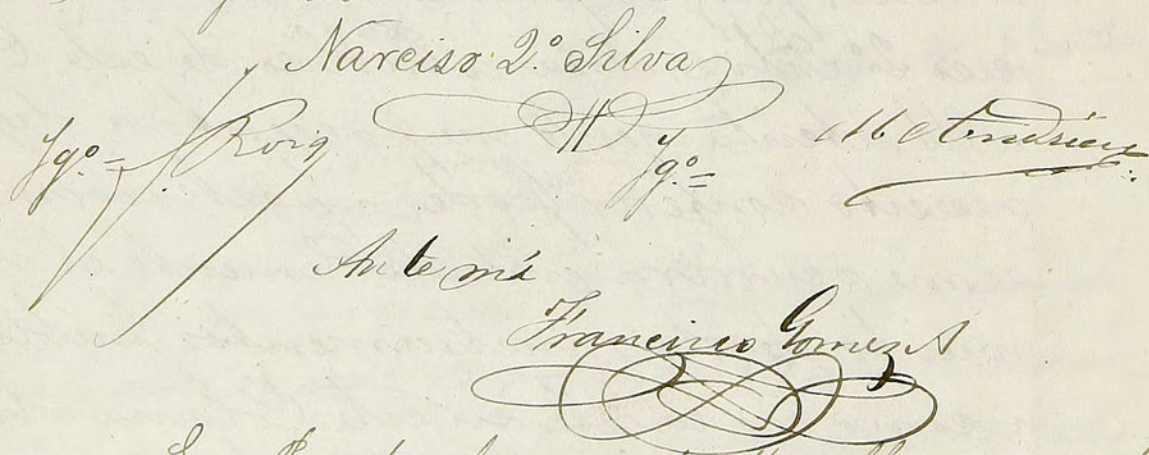 Narciso 2º. Silva
Tgº.= J. Roig Tgº.= M Andrieu
Ante mí
Francisco Gomez A